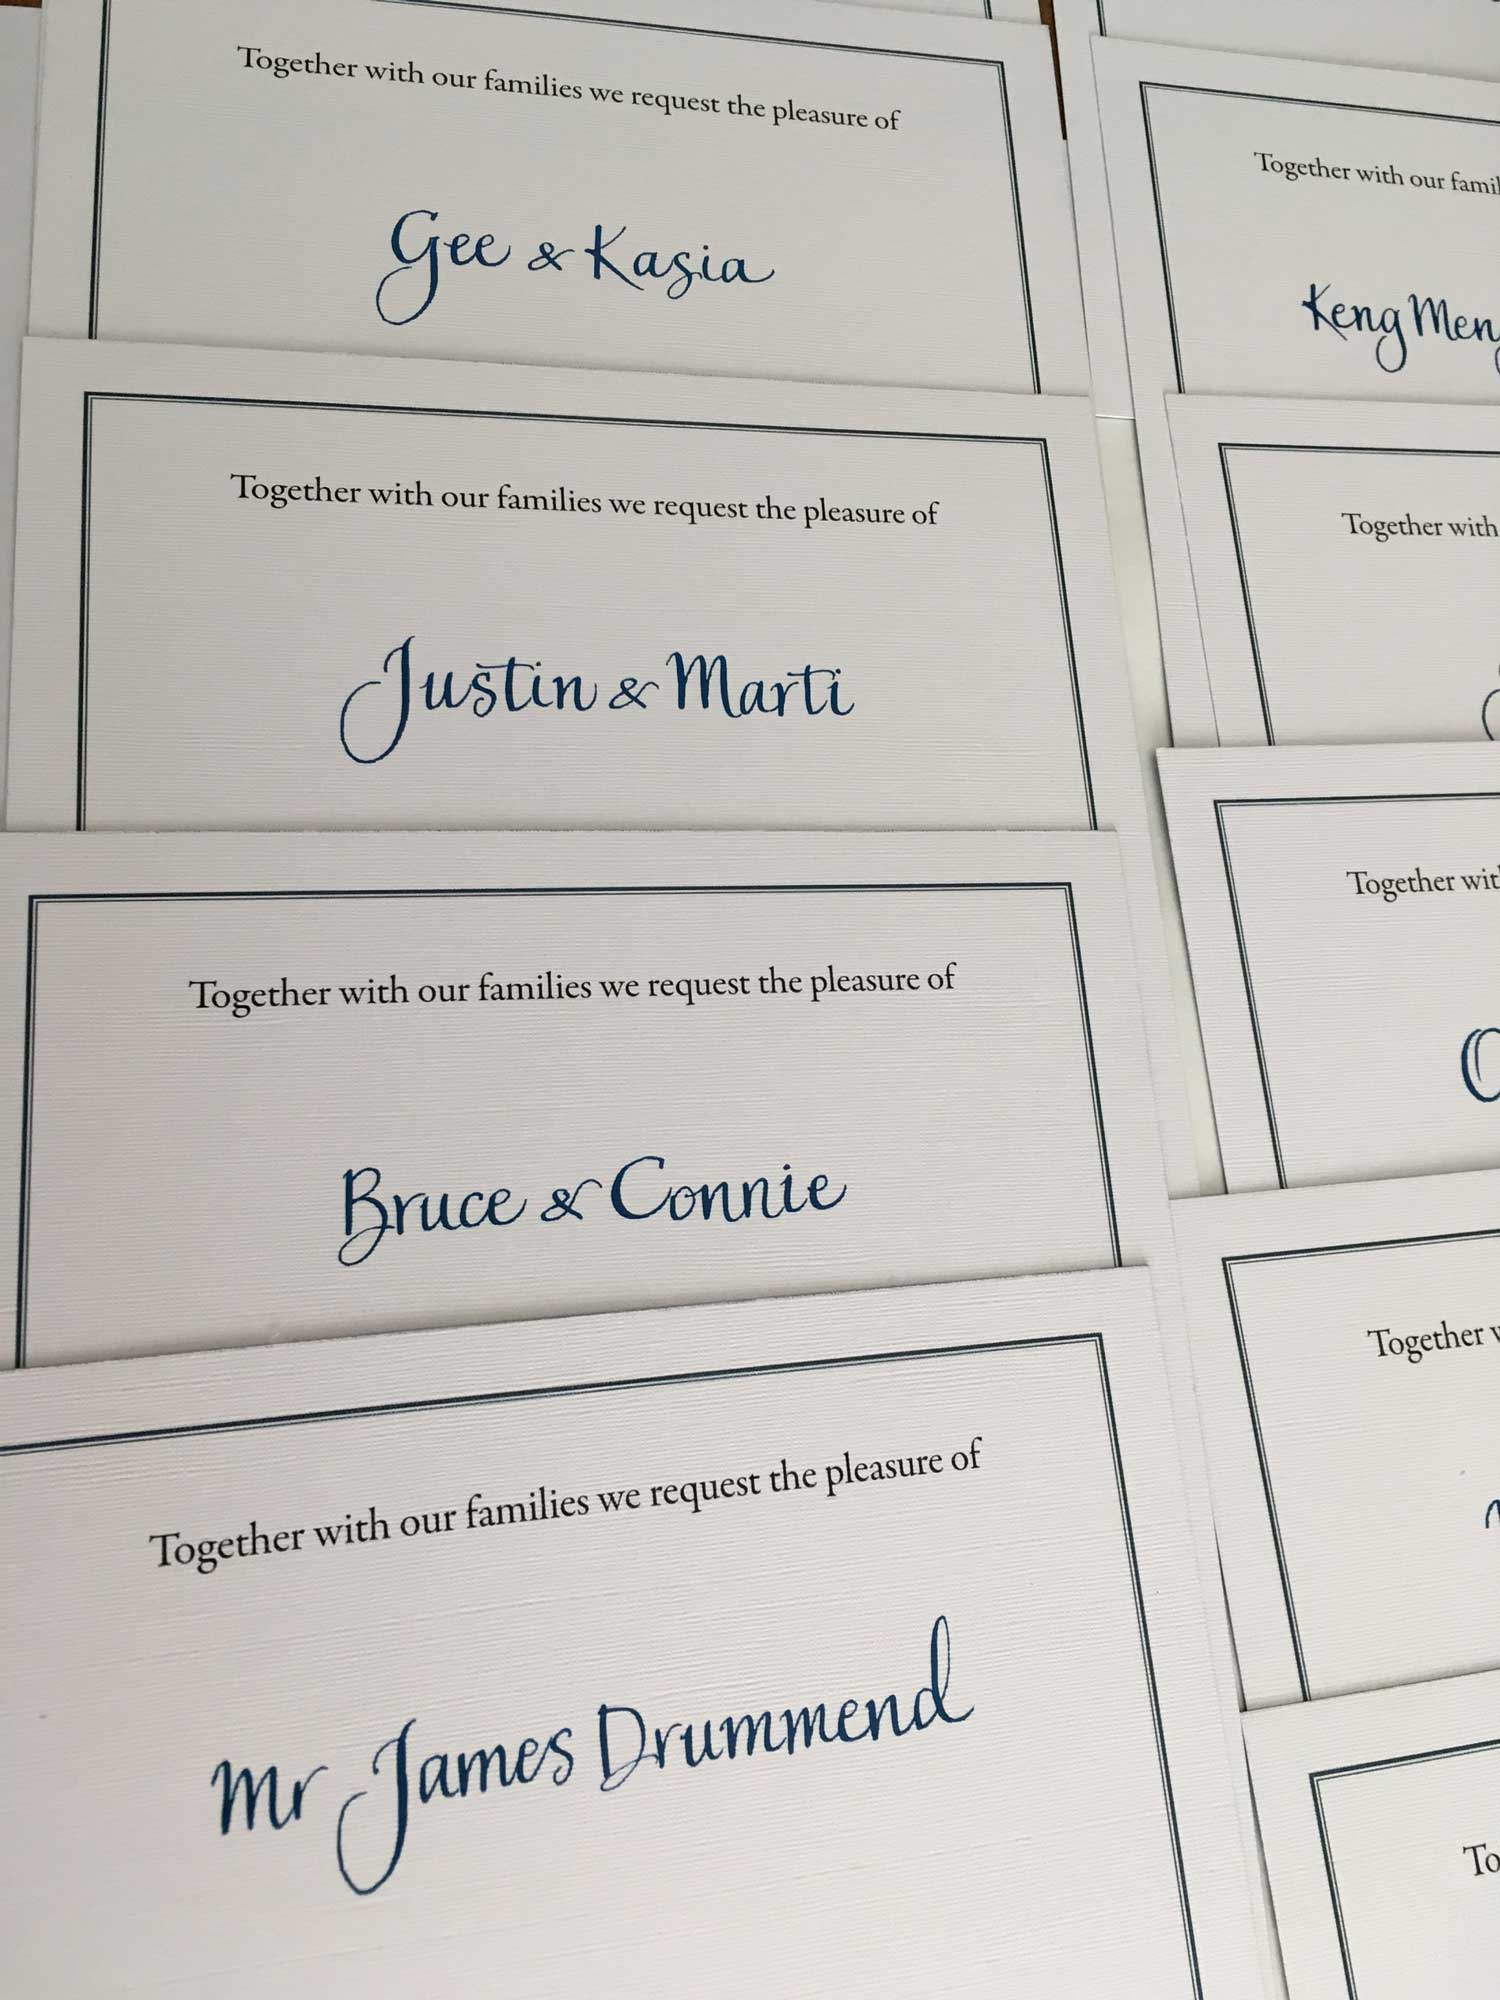 Together with our families we request the pleasure of
Gee & Kasia
Together with our families we request the pleasure of
Justin & Marti
Together with our families we request the pleasure of
Bruce & Connie
Together with our families we request the pleasure of
Mr James Drummend
Together with our
Keng
Together with
Together
Together